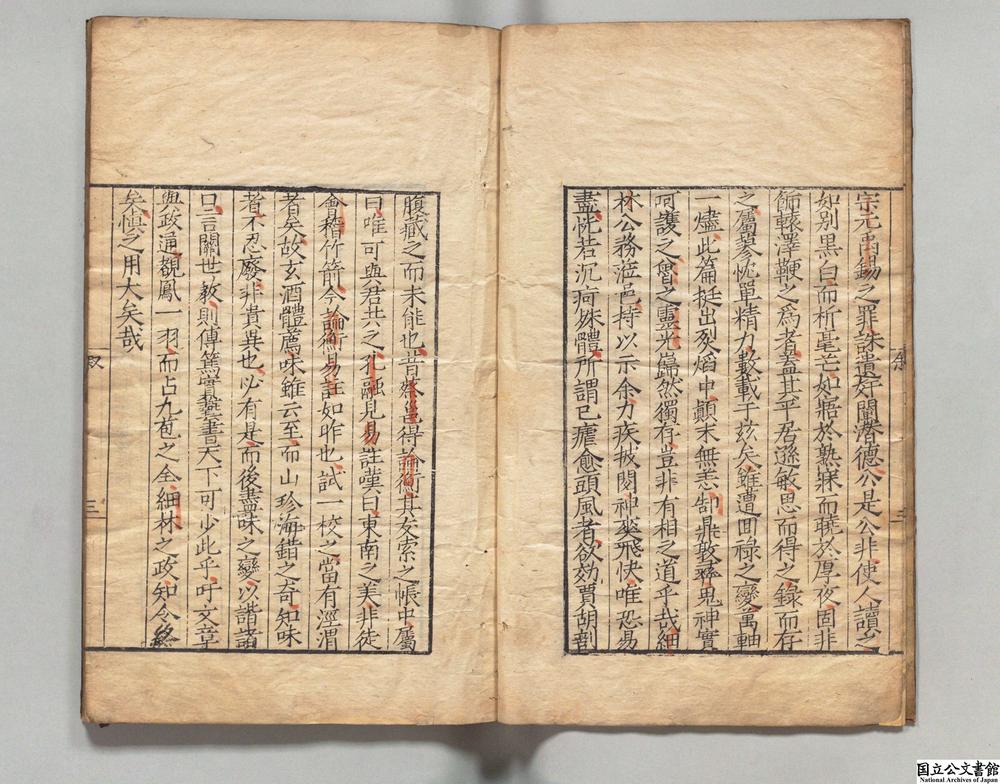 宗元禹錫之罪誅遺奸闡潛德公是公非使人讀之
如別黑白而析毫芒如寤於熟寐而聽於厚夜固非
飾轅澤鞭之為者蓋其平居遜敏思而得之錄而存
之屬蓼忱單精力數載于茲矣雖遭回祿之變萬軸
一燼此篇挺出烈焰中顛末無恙郜鼎敦彝鬼神實
呵護之魯之靈光巋然獨存豈非有相之道乎哉細
林公務涖邑持以示余力疾披閱神爽飛快唯恐易
盡恍若沉疴殊體所謂已瘧愈頭風者欲効賈胡剖
腹藏之而未能也昔蔡邕得論衡其友索之帳中屬
曰唯可與君共之孔融見易註嘆曰東南之美非徒
會稽竹箭今論衡易註如昨也試一校之當有涇渭
者矣故玄酒體薦味雖云至而山珍海錯之奇知味
者不忍廢非貴異也必有是而後盡味之變以諧諸
口言關世教則傳篤實藝書天下可少此乎吁文章
與政通覩鳳一羽而占九苞之全細林之政知令終
矣慎之用大矣哉
叙
三
叙
三
国立公文書館
National Archives of Japan